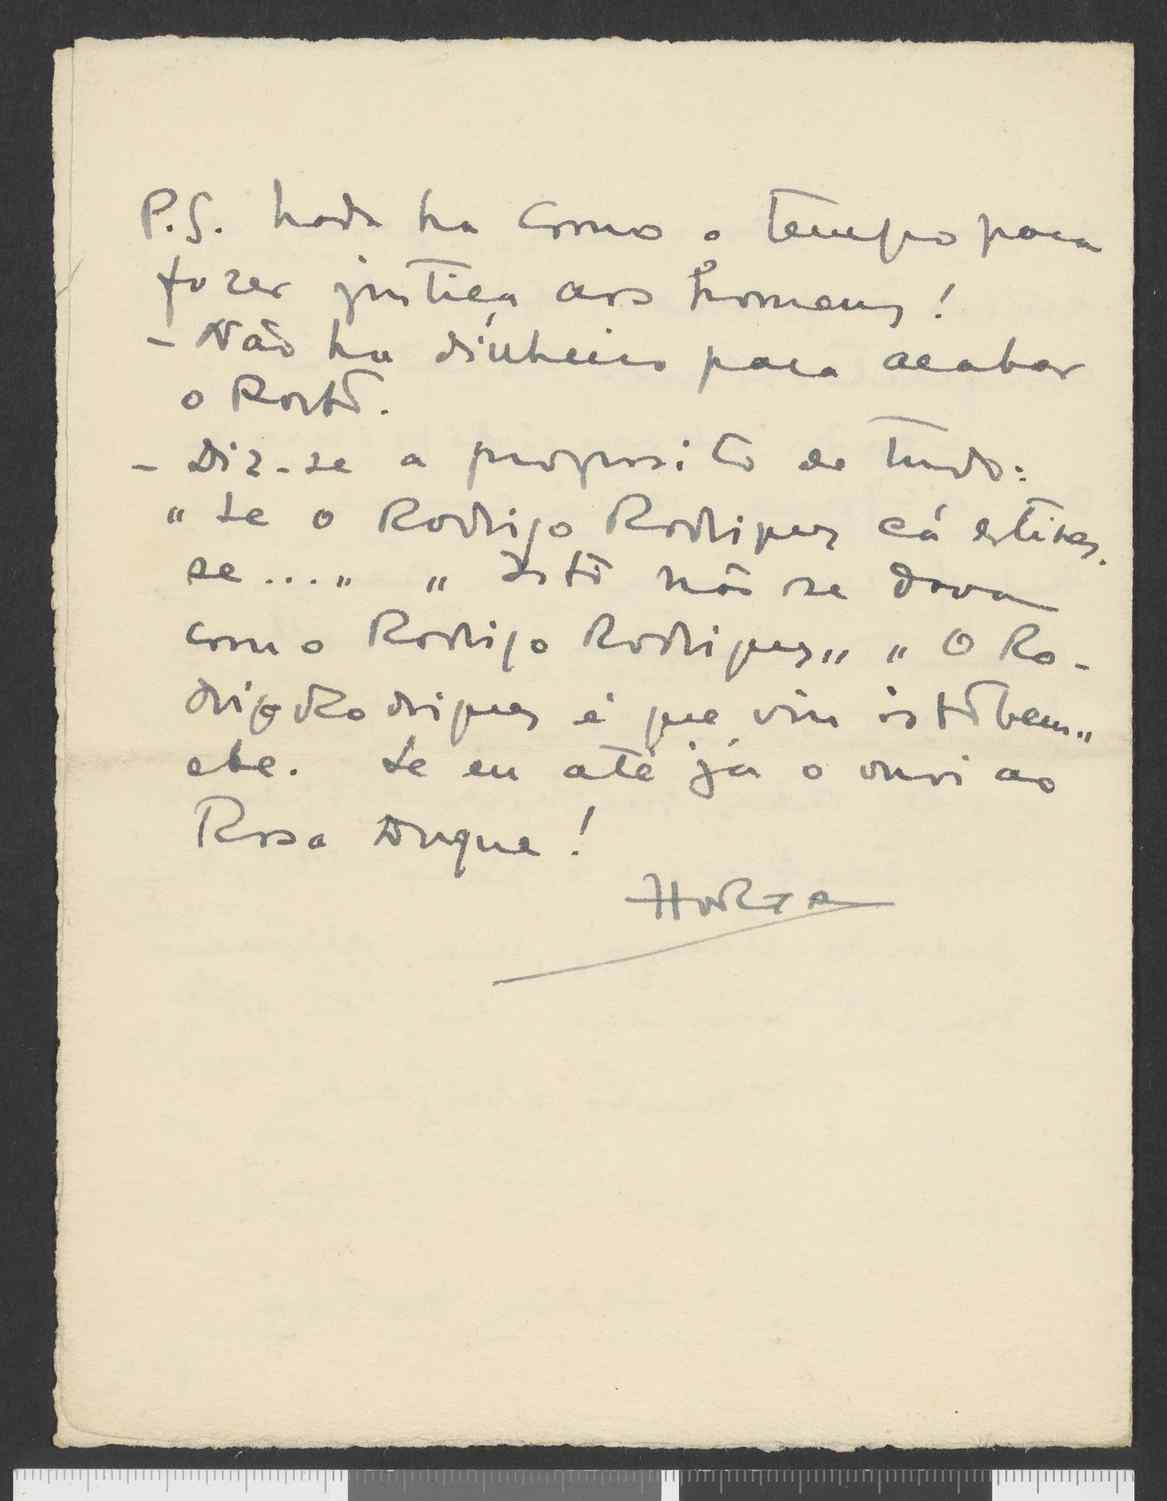 P.S. Nada ha como o tempo para
fazer justiça aos homens!
- Não ha dinheiro para acabar
o Porto.
- Diz-se a proposito de tudo:
"Se o Rodrigo Rodrigues cá estives-
se..." "Isto não se dava
com o Rodrigo Rodrigues" "O Ro-
drigo Rodrigues é que viu isto bem"
etc. Se eu até já o ouvi ao
Rosa Duque!
Horta